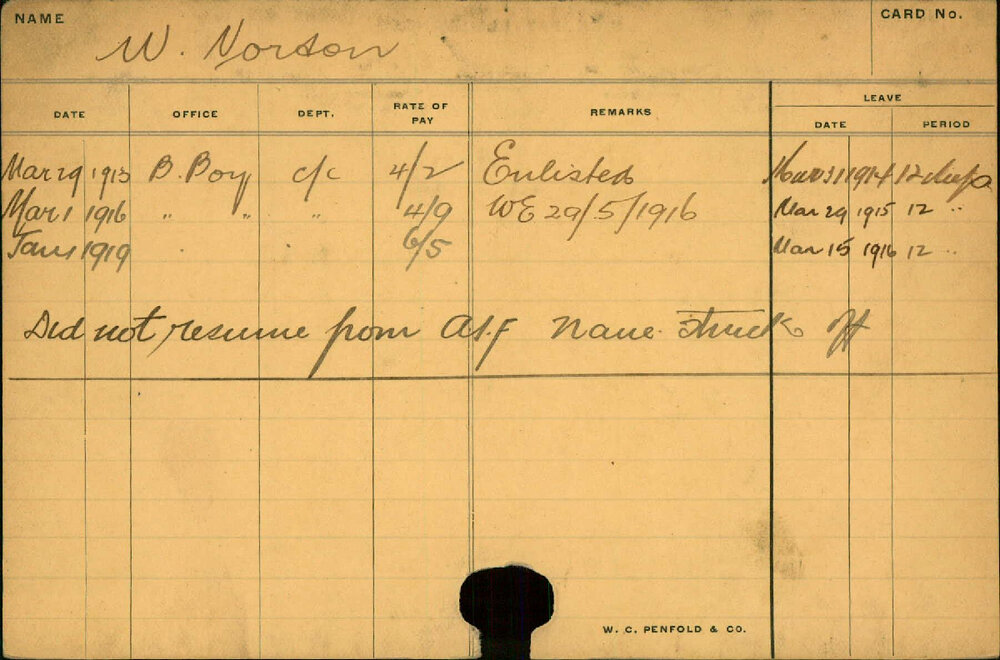 NAME W. Norton CARD No.
DATE OFFICE DEPT. RATE OF PAY REMARKS LEAVE
DATE PERIOD
Mar 29 1913 B. Boy c/c 4/2 Enlisted Mar 31 1914 12 days
Mar 1 1916 " " " 4/9 WE 29/5/1916 Mar 29 1915 12 "
Jan 1 1919 6/5 Mar 15 1916 12 "
Did not resume from A.I.F Name struck off
W. C. PENFOLD & CO.